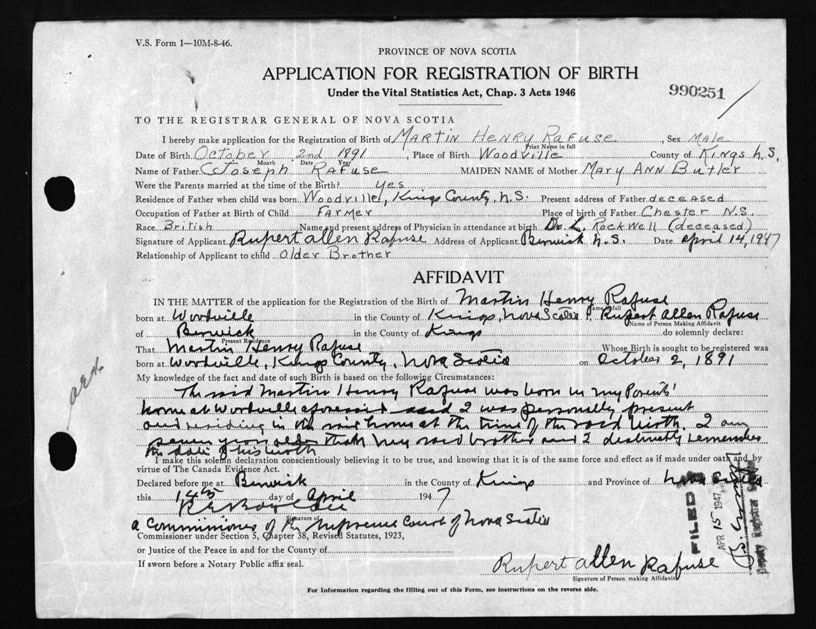 V.S. Form 1—10M-8-46.
PROVINCE OF NOVA SCOTIA
APPLICATION FOR REGISTRATION OF BIRTH
Under the Vital Statistics Act, Chap. 3 Acts 1946
990251
TO THE REGISTRAR GENERAL OF NOVA SCOTIA
I hereby make application for the Registration of Birth of Martin Henry Rafuse Sex Male
Print Name in full
Date of Birth October 2nd 1891, Place of Birth Woodville County of Kings N.S.
Month Date Year
Name of Father Joseph Rafuse MAIDEN NAME of Mother Mary Ann Butler
Were the Parents married at the time of the Birth? yes
Residence of Father when child was born Woodville, Kings County, N.S. Present address of Father deceased
Occupation of Father at Birth of Child Farmer Place of birth of Father Chester N.S.
Race British Name and present address of Physician in attendance at birth Dr. L. Rockwell (deceased)
Signature of Applicant Rupert allen Rafuse Address of Applicant Berwick N.S. Date April 14, 1947
Relationship of Applicant to child Older Brother
AFFIDAVIT
IN THE MATTER of the application for the Registration of the Birth of Martin Henry Rafuse
Name in full
born at Woodville in the County of Kings, Nova Scotia I, Rupert Allen Rafuse
Name of Person Making Affidavit
of Berwick in the County of Kings do solemnly declare:
Present Residence
That Martin Henry Rafuse Whose Birth is sought to be registered was
born at Woodville, Kings County, Nova Scotia on October 2, 1891
My knowledge of the fact and date of such Birth is based on the following Circumstances:
The said Martin Henry Rafuse was born in my Parents'
home at Woodville aforesaid and I was personally present
and residing in the said home at the time of the said birth, I am
seven years older than my said brother and I distinctly remember
the date of his birth
I make this solemn declaration conscientiously believing it to be true, and knowing that it is of the same force and effect as if made under oath and by
virtue of The Canada Evidence Act.
Declared before me at Berwick in the County of Kings and Province of Nova Scotia
this 14th day of April 1947
Signature of
a Commissioner of the Supreme Court of Nova Scotia
Commissioner under Section 5, Chapter 38, Revised Statutes, 1923,
or Justice of the Peace in and for the County of
If sworn before a Notary Public affix seal.
Rupert allen Rafuse
Signature of Person making Affidavit
For Information regarding the filling out of this Form, see instructions on the reverse side.
FILED
APR 15 1947
Deputy Registrar General